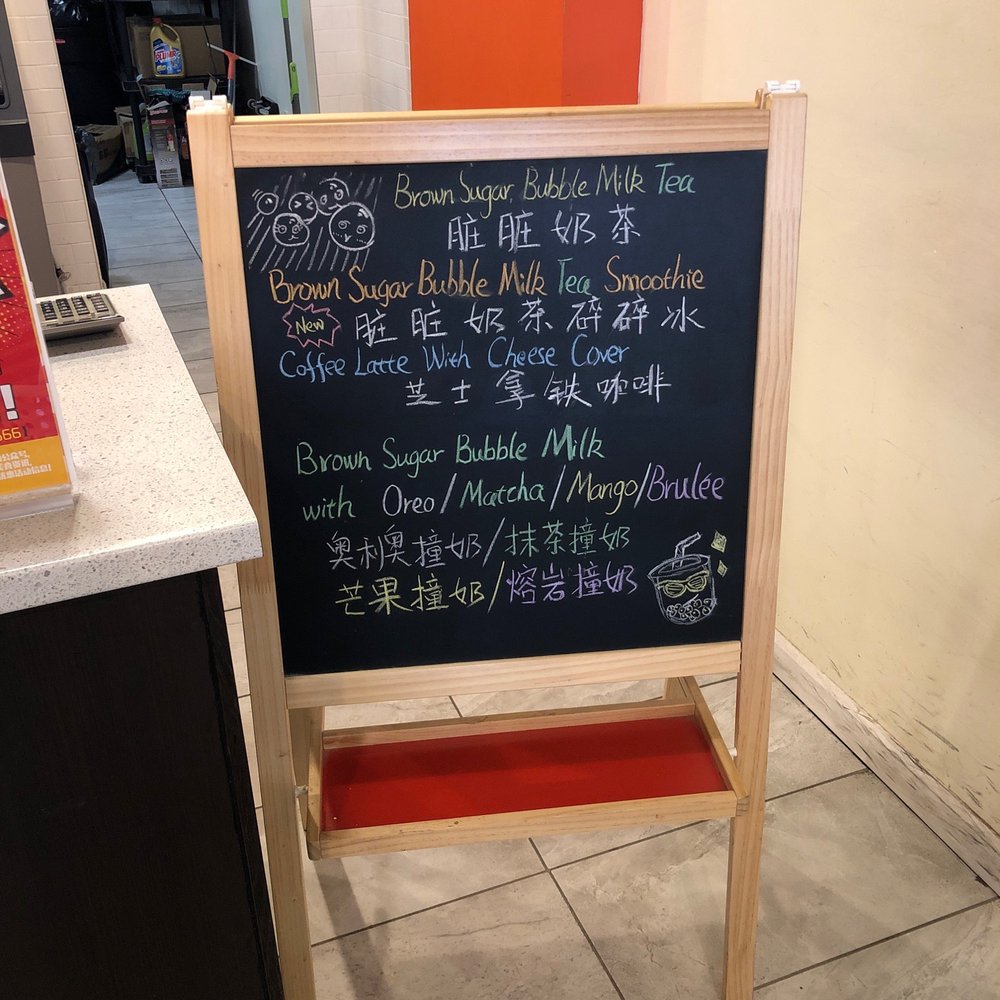 Brown Sugar Bubble Milk Tea
脏脏奶茶
Brown Sugar Bubble Milk Tea Smoothie
New
脏脏奶茶碎碎冰
Coffee Latte With Cheese Cover
芝士拿铁咖啡
Brown Sugar Bubble Milk
with Oreo/Matcha/Mango/Brulée
奥利奥撞奶/抹茶撞奶
芒果撞奶/熔岩撞奶